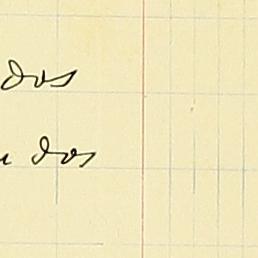 dos
dos